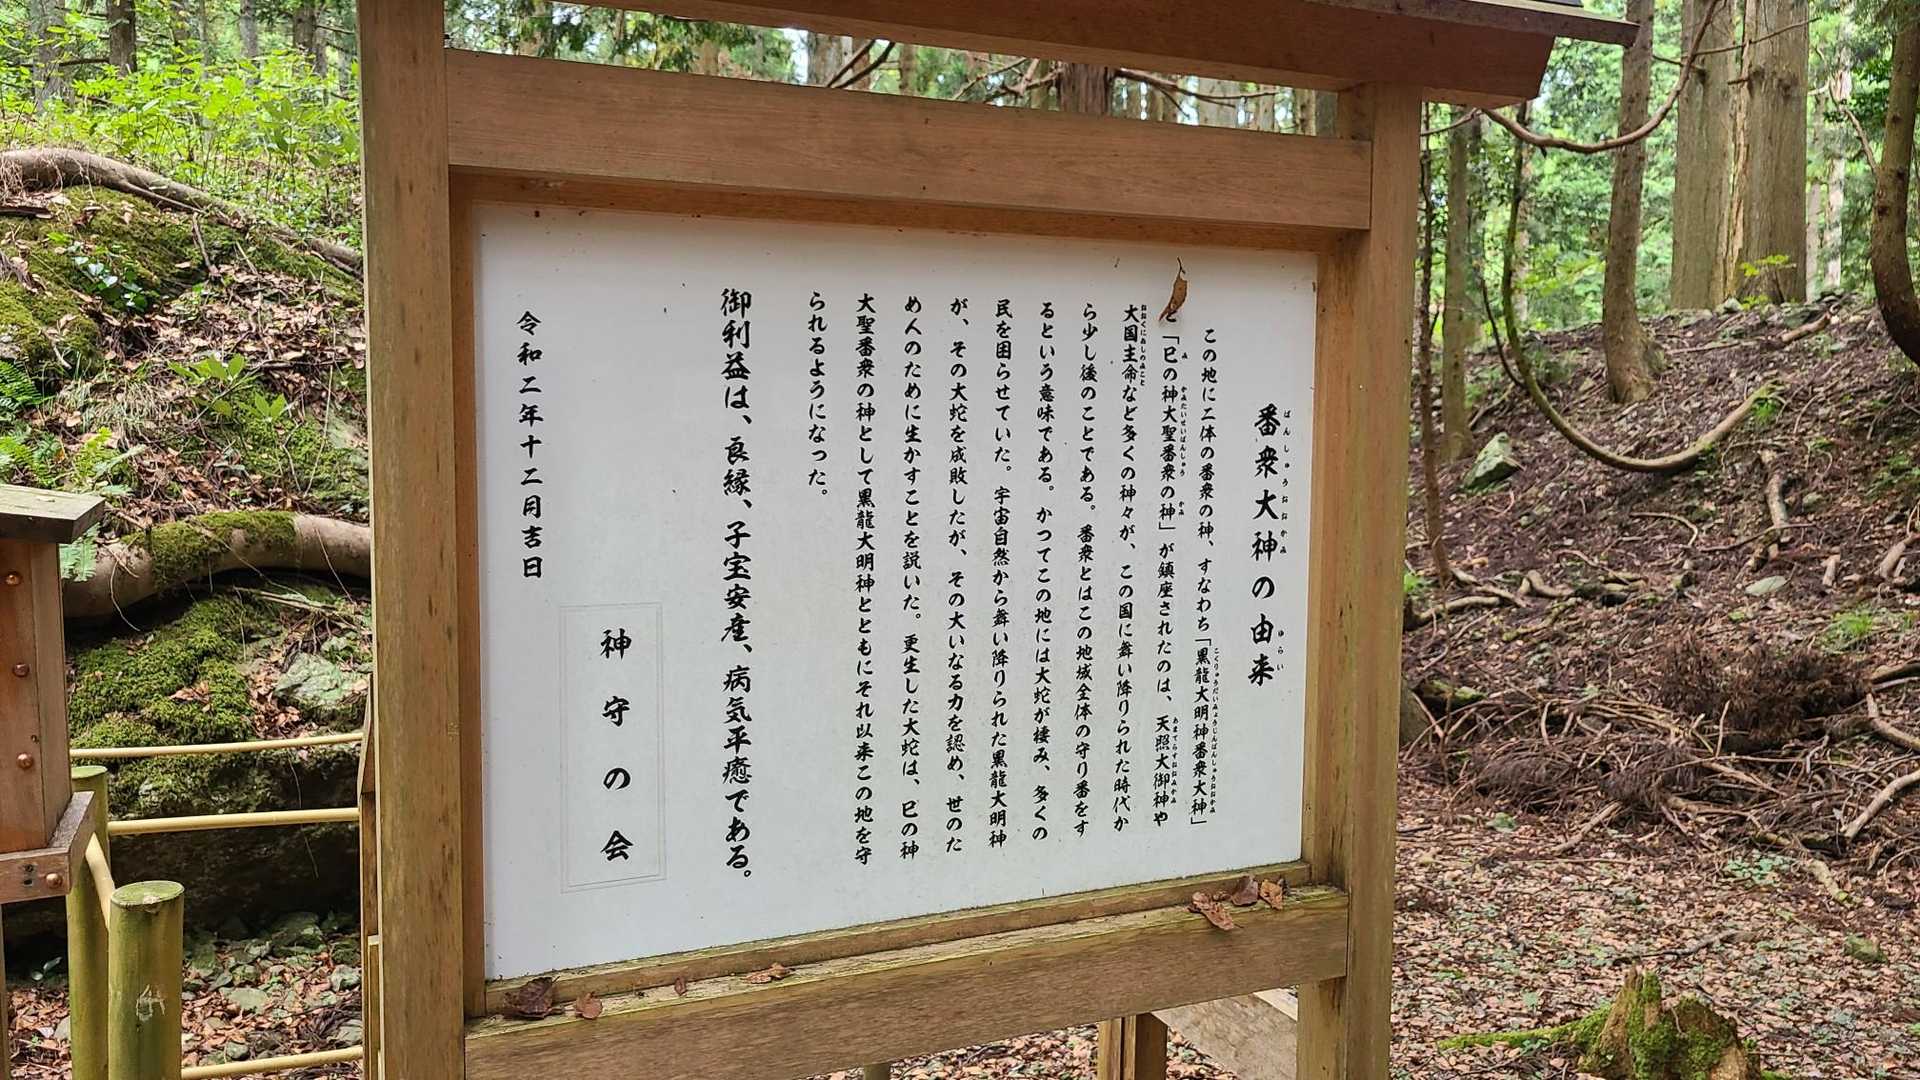 番衆大神の由来
この地に二体の番衆の神、すなわち「黒龍大明神番衆大神」
と「巳の神大聖番衆の神」が鎮座されたのは、天照大御神や
大国主命など多くの神々が、この国に舞い降りられた時代か
ら少し後のことである。番衆とはこの地域全体の守り番をす
るという意味である。かつてこの地には大蛇が棲み、多くの
民を困らせていた。宇宙自然から舞い降りられた黒龍大明神
が、その大蛇を成敗したが、その大いなる力を認め、世のた
め人のために生かすことを説いた。更生した大蛇は、巳の神
大聖番衆の神として黒龍大明神とともにそれ以来この地を守
られるようになった。
御利益は、良縁、子宝安産、病気平癒である。
神守の会
令和二年十二月吉日